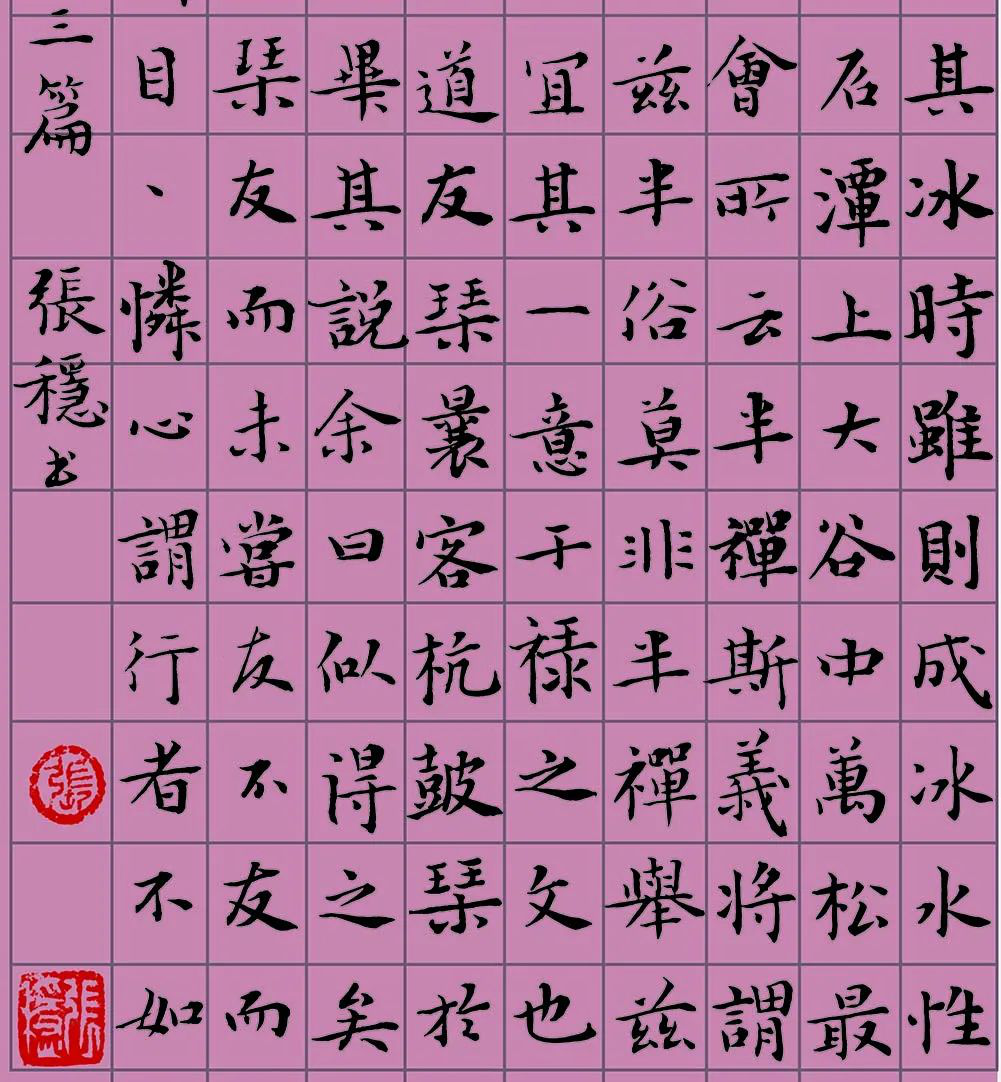 其冰時雖則成冰水性
后潭上大谷中萬松最
會所云半禪斯義將謂
茲半俗莫非半禪舉茲
宜其一意于祿之文也
道友琹曩客杭鼓琹於
畢其說余曰似得之矣
琹友而未嘗友不友而
目、憐心謂行者不如
三篇 張穩书
張
張穩